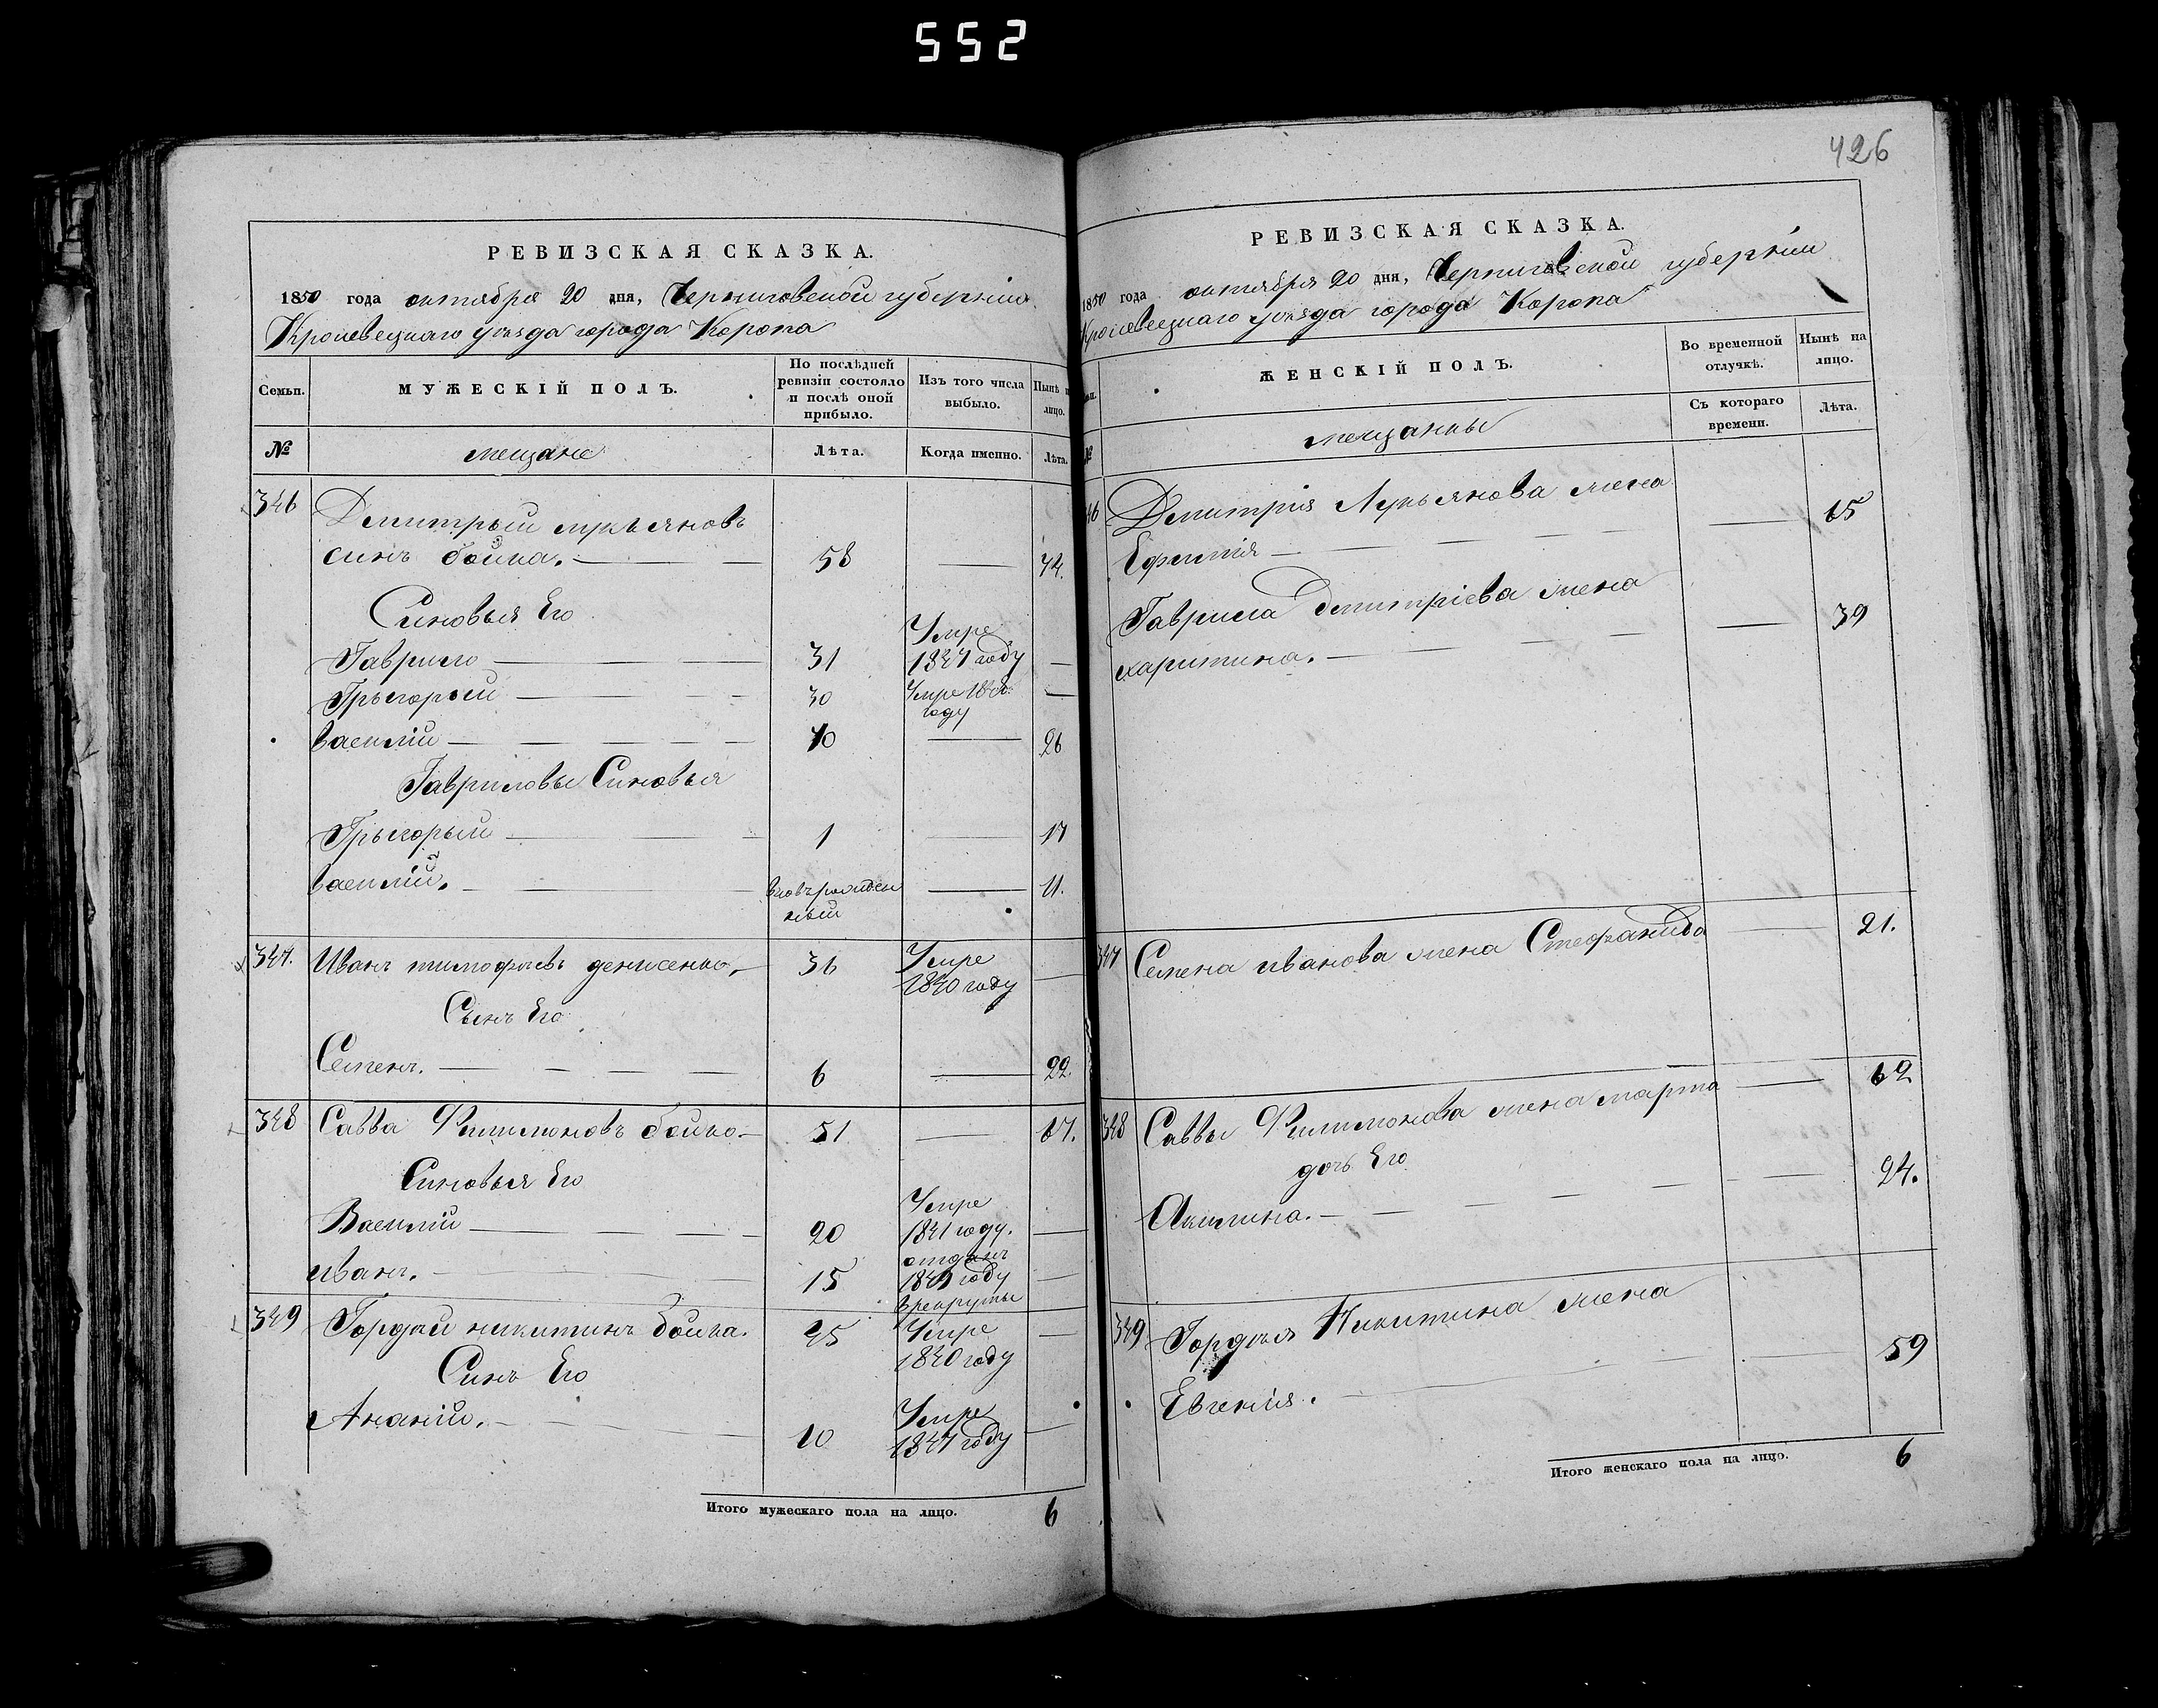 552
426
РЕВИЗСКАЯ СКАЗКА.
1850 года октября 20 дня, Черниговской губерніи
Кролевецкаго уѣзда города Коропа
Семьи. МУЖЕСКІЙ ПОЛЪ. По послѣдней ревизіи состояло и послѣ оной прибыло. Изъ того числа выбыло. Нынѣ на лицо.
№ мещане Лѣта. Когда именно. Лѣта.
346 Дмитрый лукьяновъ
синъ бойка. 58 — 74.
Синовья Его
Гаврило 31 Умре 1847 году —
Грыгорый 30 Умре году —
василій 10 — 26
Гавриловы Синовья
Грыгорый 1 — 17
василій 2. вновърожден ный — 11.
347. Иванъ тимофѣевъ денисенко, 36 Умре 1840 году —
Сынъ Его
Семенъ. 6 — 22.
348 Савва Филимоновъ бойко. 51 — 67.
Синовья Его
Василій 20 Умре 1841 году. —
иванъ. 15 отданъ году в рекруты —
349 Гордѣй никитинъ бойка. 45 Умре 1840 году —
Синъ Его
Ананій. 10 Умре 1847 году —
Итого мужескаго пола на лицо. 6
РЕВИЗСКАЯ СКАЗКА.
1850 года октября 20 дня, Черниговской губерніи
Кролевецкаго уѣзда города Коропа
ЖЕНСКІЙ ПОЛЪ. Во временной отлучкѣ. Нынѣ на лицо.
№ мещанкы Съ котораго времени. Лѣта.
46 Дмитрія Лукьянова жена
Ефимія — 65
Гаврила дмитріева жена
харитина. — 39
347 Семена иванова жена Стефанида — 21.
348 Саввы Филимонова жена марта — 62
дочь Его
Акилина. — 24.
349 Гордѣя Никитина жена
Евгенія. — 59
Итого женскаго пола на лицо. 6